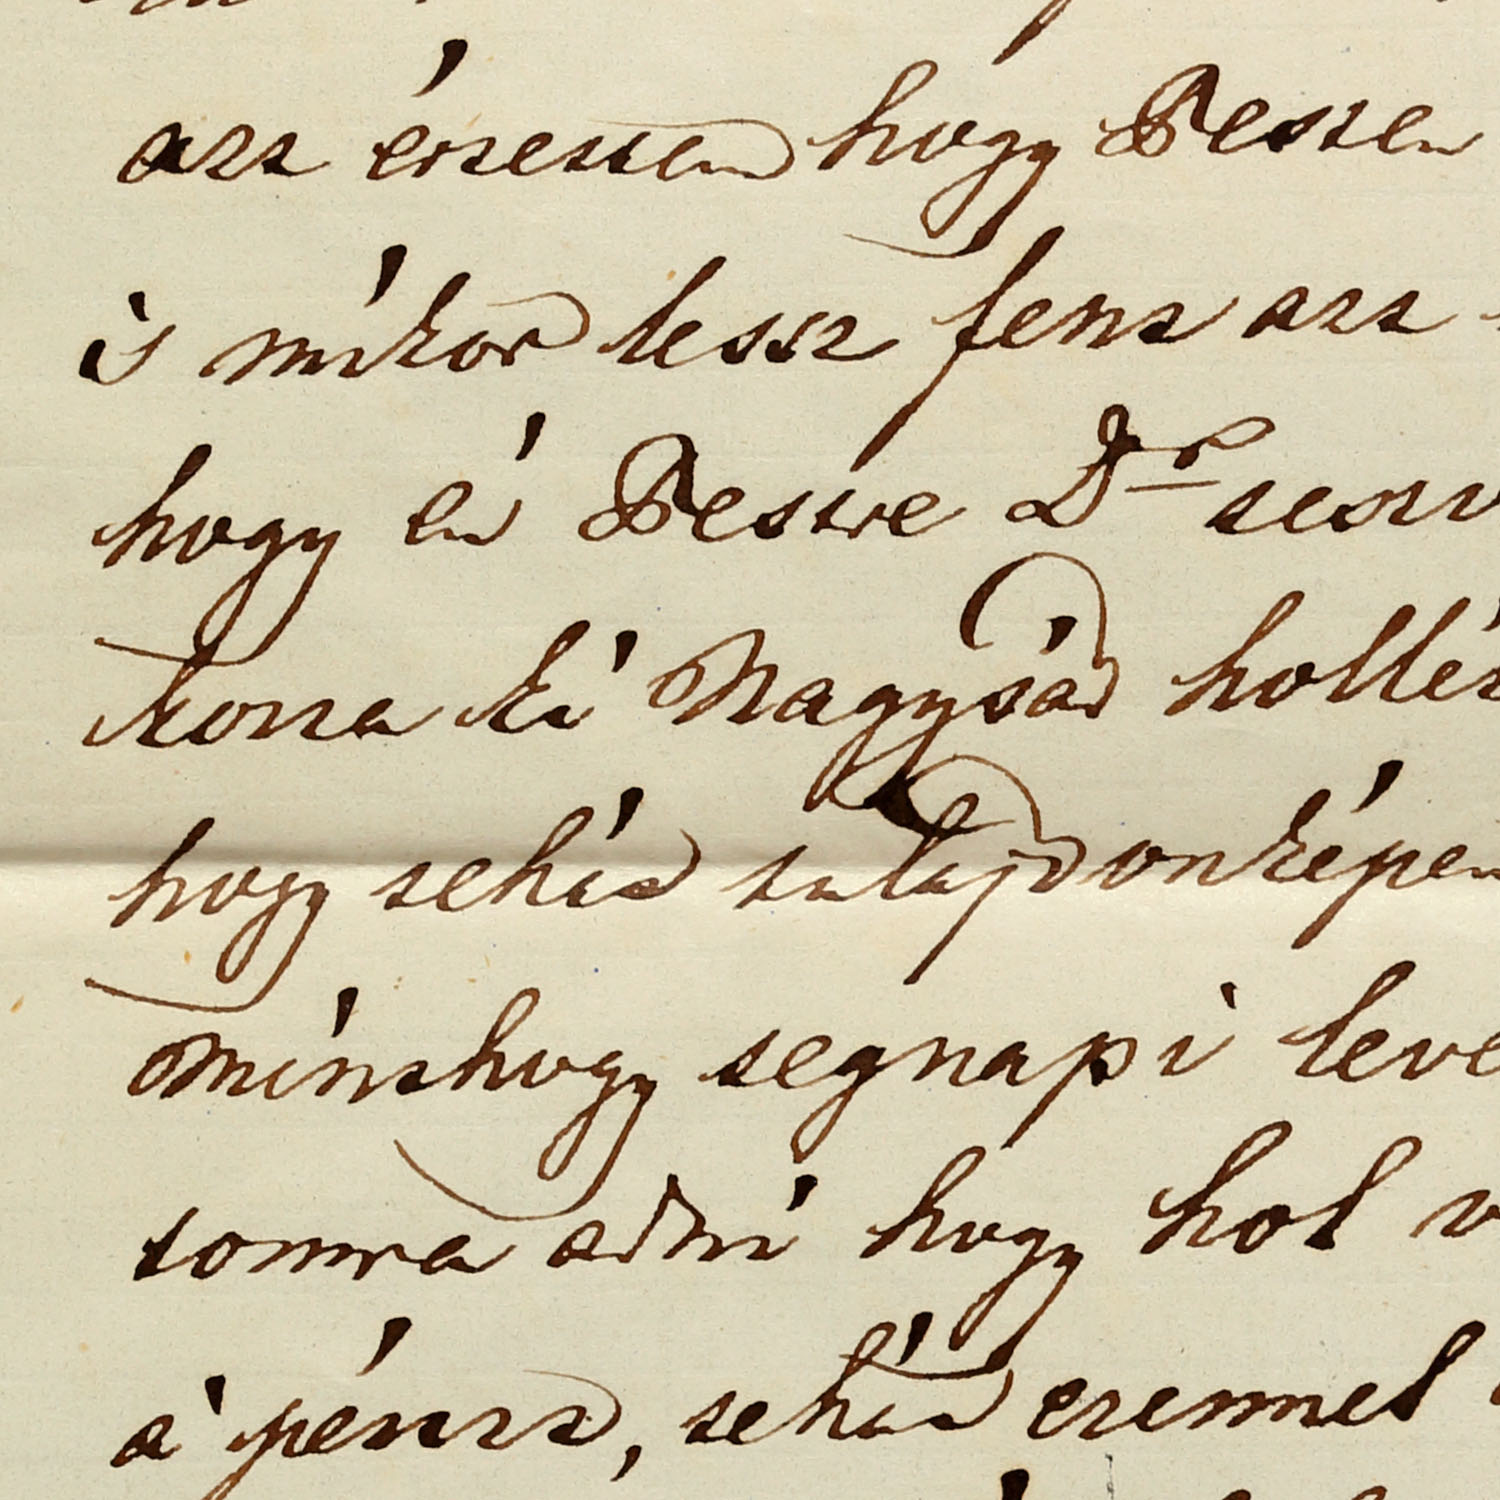 azt értettem hogy Pesten
is mikor lessz fent azt
hogy én Pestre Dr
kotta ki Nagysád
hogy tehát tulajdonképen
Minthogy tegnapi leve
tomra adni hogy hol v
a' pénzt, tehát ezennel